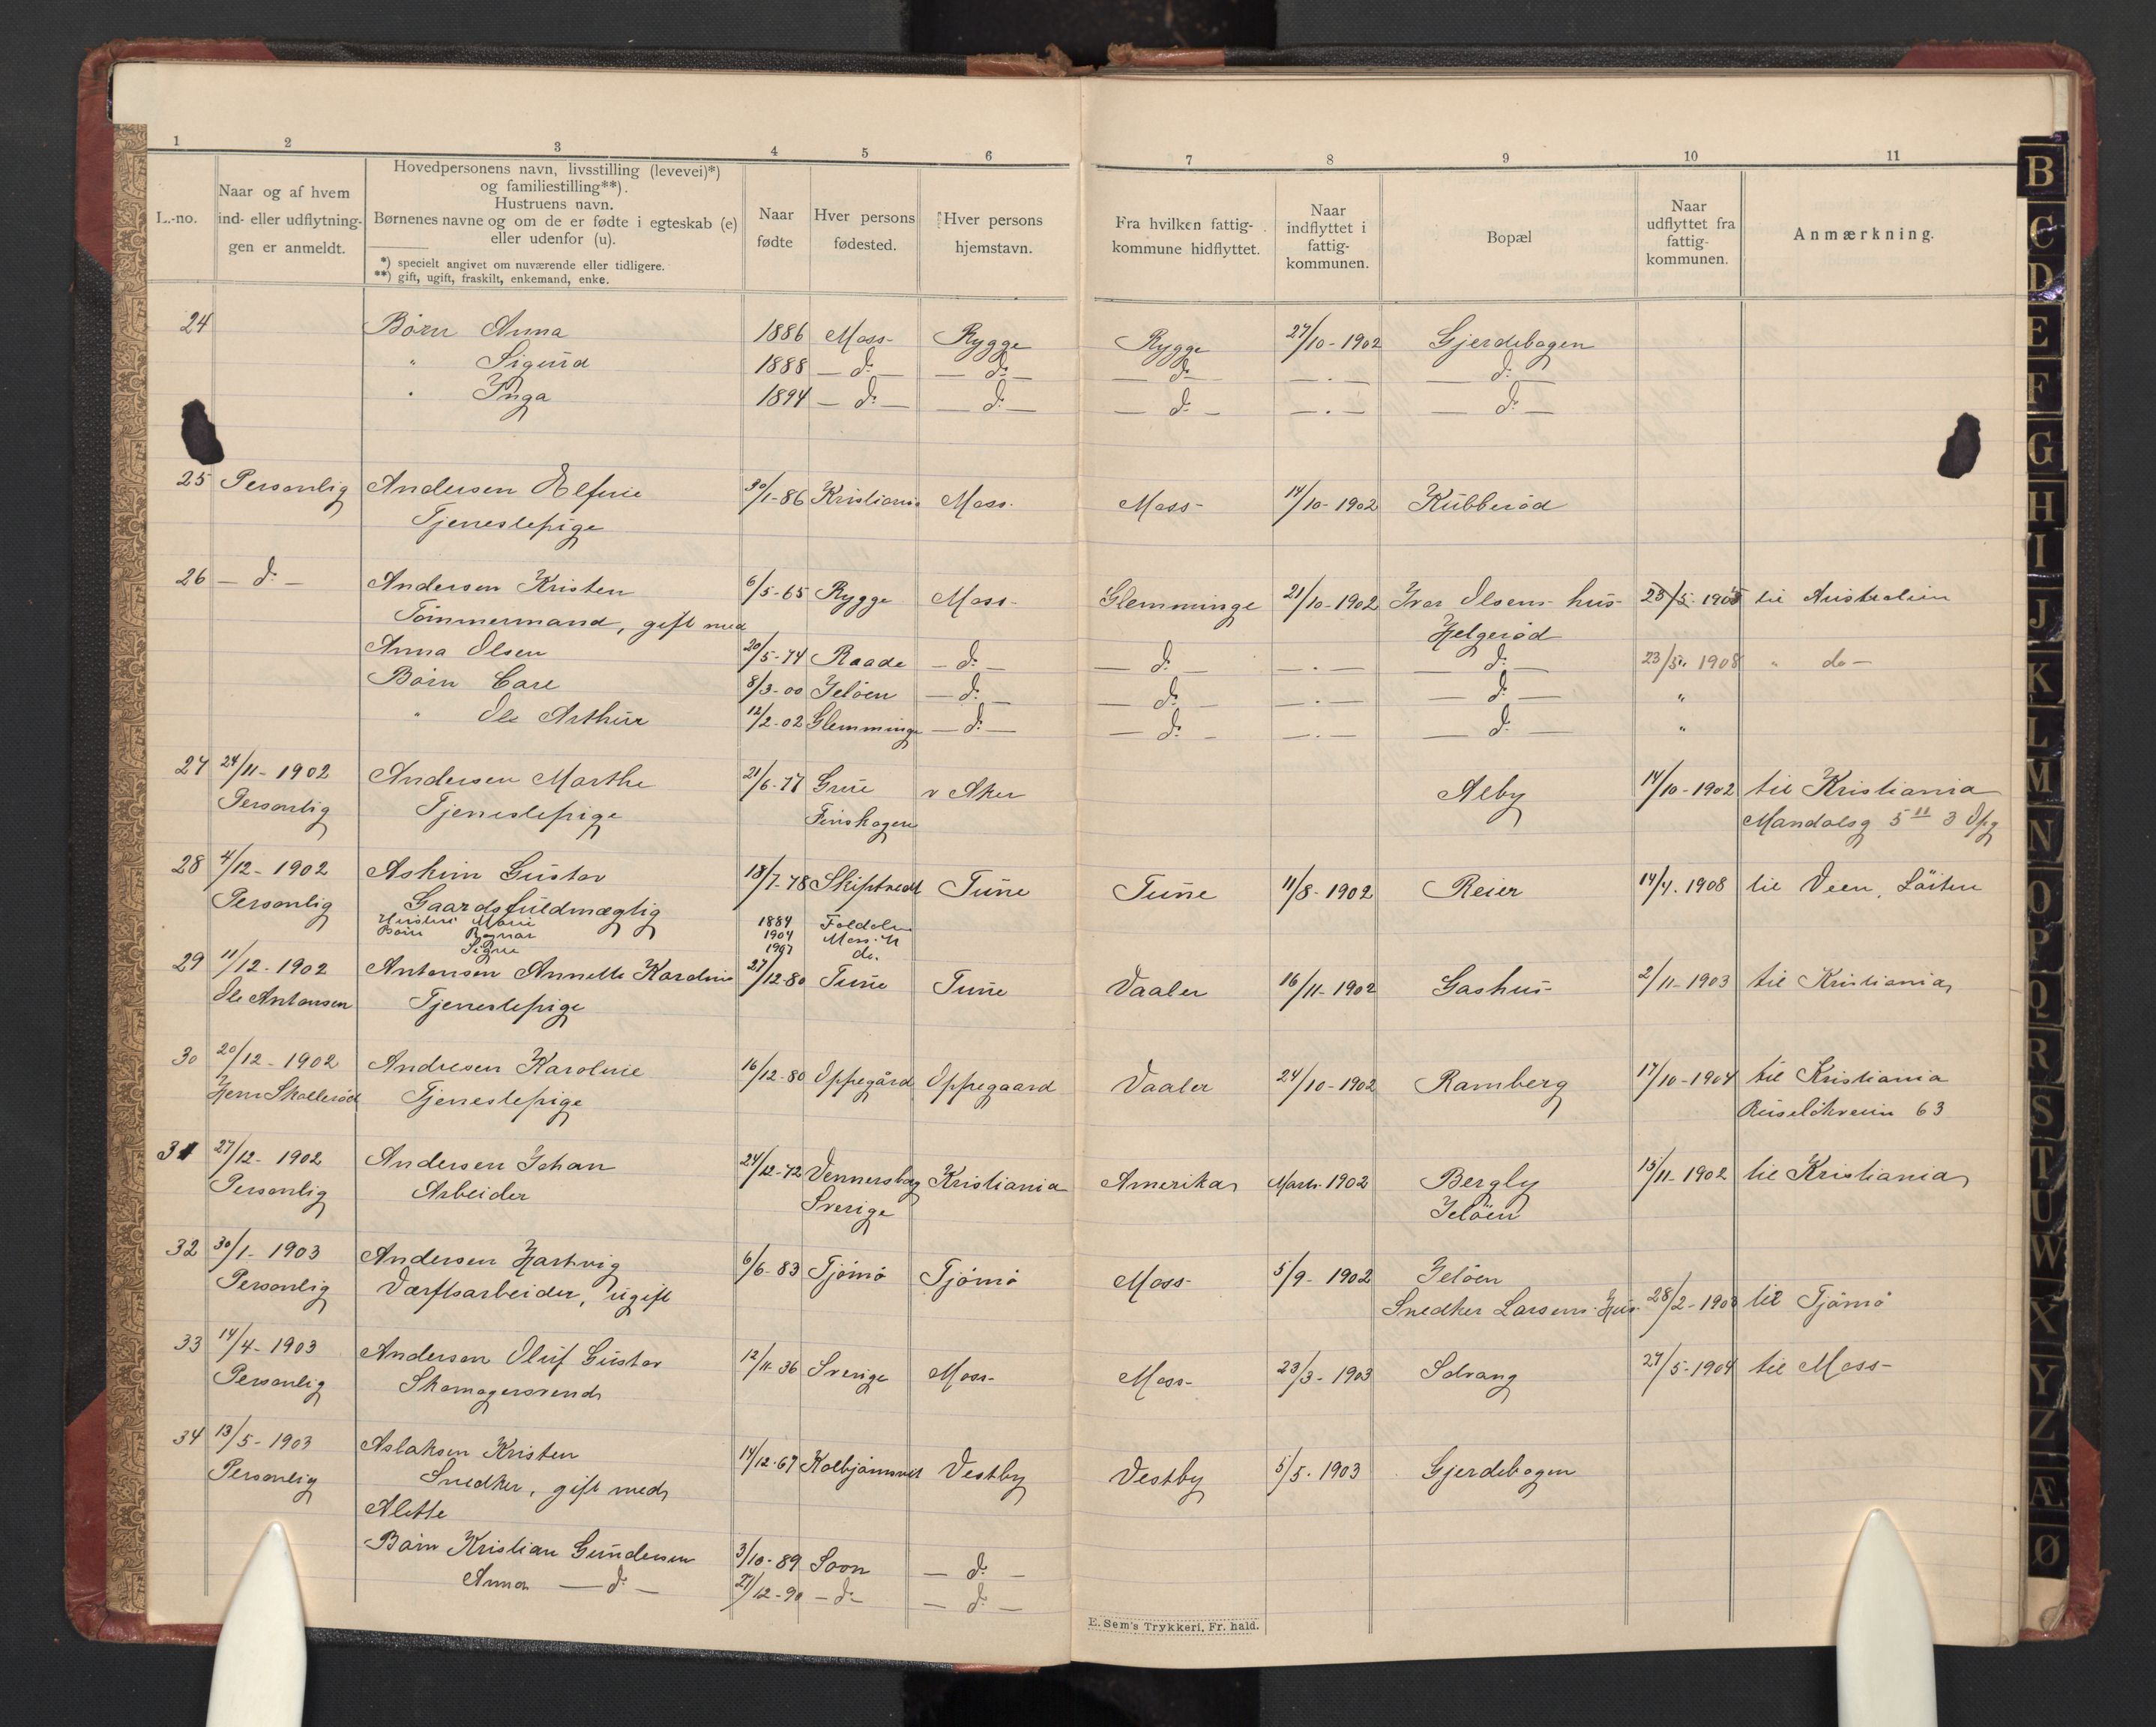 1 2 3 4 5 6 7 8 9 10 11
L.-no.
Naar og af hvem
ind- eller udflytnin-
gen er anmeldt.
Hovedpersonens navn, livsstilling (levevei)*)
og familiestilling**).
Hustruens navn.
Børnenes navne og om de er fødte i egteskab (e)
eller udenfor (u).
*) specielt angivet om nuværende eller tidligere.
**) gift, ugift, fraskilt, enkemand, enke.
Naar
fødte
Hver persons
fødested.
Hver persons
hjemstavn.
Fra hvilken fattig-
kommune hidflyttet.
Naar
indflyttet i
fattig-
kommunen.
Bopæl
Naar
udflyttet fra
fattig-
kommunen.
Anmærkning.
24 Børn Anna 1886 Moss- Rygge Rygge 27/10-1902 Gjerdebogen
" Sigurd 1888 — do — — do — — do — — . — — do —
" Inga 1894 — do — — do — — do — — . — — do —
25 Personlig Andersen Elfrie 30/1-86 Kristiania Moss. Moss- 14/10-1902 Kubberød
Tjenestepige
26 — do — Andersen Kristen 6/5-65 Rygge Moss- Glemminge 21/10-1902 Iver Olsens hus- 23/5-1905 til Australien
Tømmermand, gift med Helgerød
Anna Olsen 20/5-74 Raade — do — — do — — . — — do — 23/5. 1908 " do —
Børn Carl 8/3-00 Jeløen — do — — do — — . — — do — "
" Ole Arthur 12/2-02 Glemminge — do — — do — — . — — do — "
27 24/11-1902 Andersen Marthe 21/6-77 Grue v Aker Alby 14/10-1902 til Kristiania
Personlig Tjenestepige Finskogen Mandalsg 5 II 3 Opg
28 4/12-1902 Askim Gustav 18/7-78 Skiptvedt Tune Tune 11/8-1902 Reier 14/4. 1908 til Veen, Løiten
Personlig Gaardsfuldmægtig
Hustru Marie 1884
Børn Ragnar 1904 Moss. M
Signe 1907 do.
29 11/12-1902 Antonsen Annette Karoline 27/12-80 Tune Tune Vaaler 16/11-1902 Gashus- 2/11-1903 til Kristiania
Ole Antonsen Tjenestepige
30 20/12-1902 Andresen Karoline 16/12-80 Oppegård Oppegaard Vaaler 24/10-1902 Ramberg 17/10-1904 til Kristiania
Jens Skallerød Tjenestepige Ruseløkveien 63
31 27/12-1902 Andersen Johan 24/12-72 Vennersborg Kristiania Amerika Marts-1902 Bergly 15/11-1902 til Kristiania
Personlig Arbeider Sverige Jeløen
32 30/1-1903 Andersen Hartvig 6/6-83 Tjømø Tjømø Moss- 5/9-1902 Jeløen
Personlig Værftsarbeider, ugift Snedker Larsens Hus- 28/2-1903 til Tjømø
33 14/4-1903 Anderson Oluf Gustav 12/11-36 Sverige Moss- Moss- 23/3-1903 Solvang 27/5-1904 til Moss-
Personlig Skomagersvend
34 13/5-1903 Aslaksen Kristen 14/12-67 Kolbjørnsvik Vestby Vestby 5/5-1903 Gjerdebogen
Personlig Snedker, gift med
Alette
Børn Kristian Gundersen 3/10-89 Soon — do —
Anna — do — 27/12-90 — do — — do —
E. Sem's Trykkeri, Fr. hald.
B
C
D
E
F
G
H
I
J
K
L
M
N
O
P
Q
R
S
T
U
W
X
Y
Z
Æ
Ø